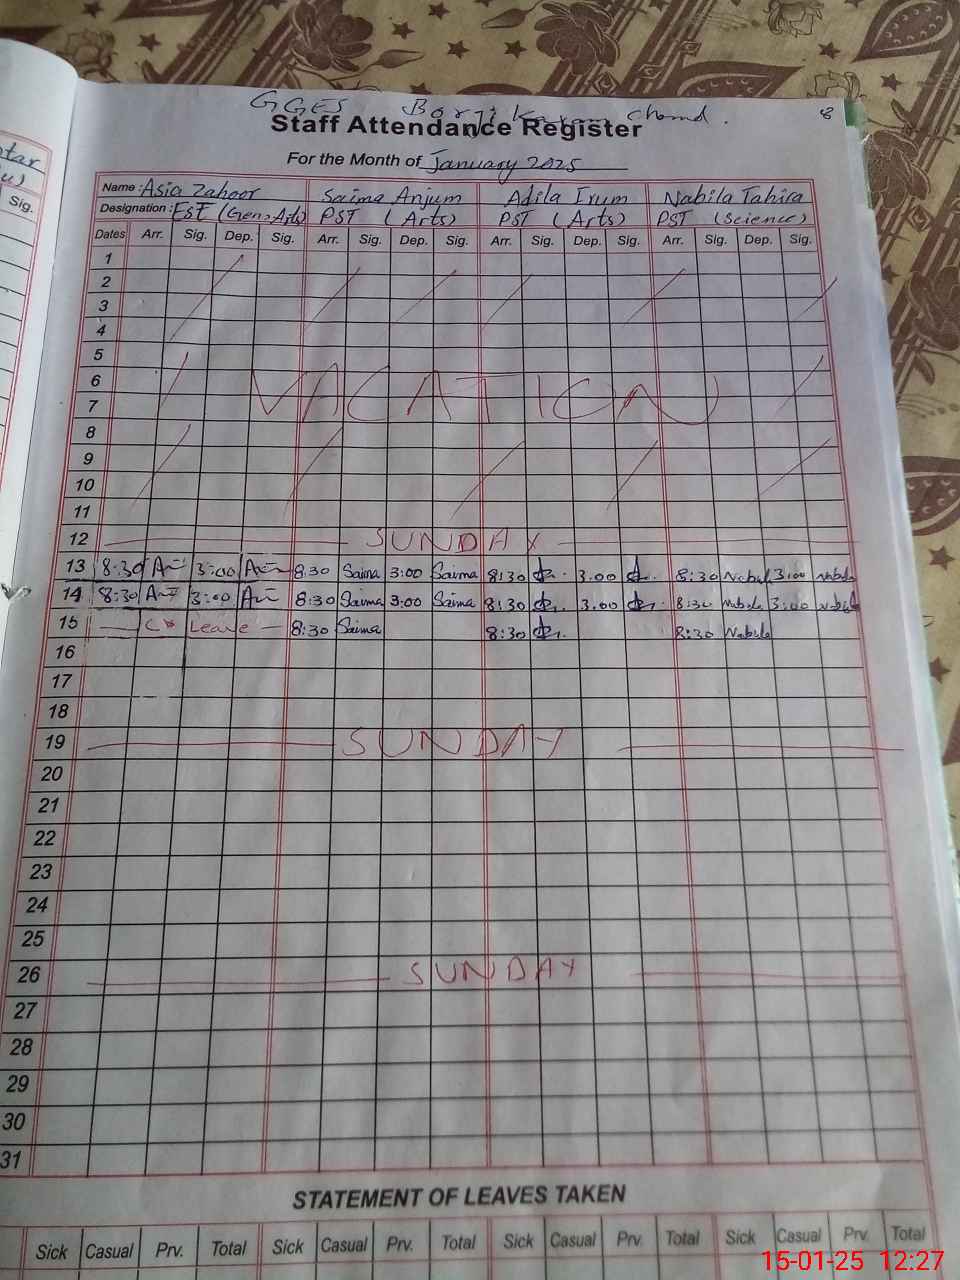 GGES Borji Karam Chand. 8
Staff Attendance Register
For the Month of January 2025
Name: Asia Zahoor Saima Anjum Adila Irum Nabila Tahira
Designation: EST (Gen, Arts) PST (Arts) PST (Arts) PST (Science)
Dates Arr. Sig. Dep. Sig. Arr. Sig. Dep. Sig. Arr. Sig. Dep. Sig. Arr. Sig. Dep. Sig.
Sig.
1
2
3
4
5
6
VACATION
7
8
9
10
11
12 SUNDAY
13 8:30 3:00 8:30 Saima 3:00 Saima 8:30 3.00 8:30 Nabila 3:00 Nabila
14 8:30 3:00 8:30 Saima 3:00 Saima 8:30 3.00 8:30 Nabila 3:00 Nabila
15 Leave 8:30 Saima 8:30 8:30 Nabila
16
17
18
19 SUNDAY
20
21
22
23
24
25
26 SUNDAY
27
28
29
30
31
STATEMENT OF LEAVES TAKEN
Sick Casual Prv. Total Sick Casual Prv. Total Sick Casual Prv. Total Sick Casual Prv. Total
15-01-25 12:27